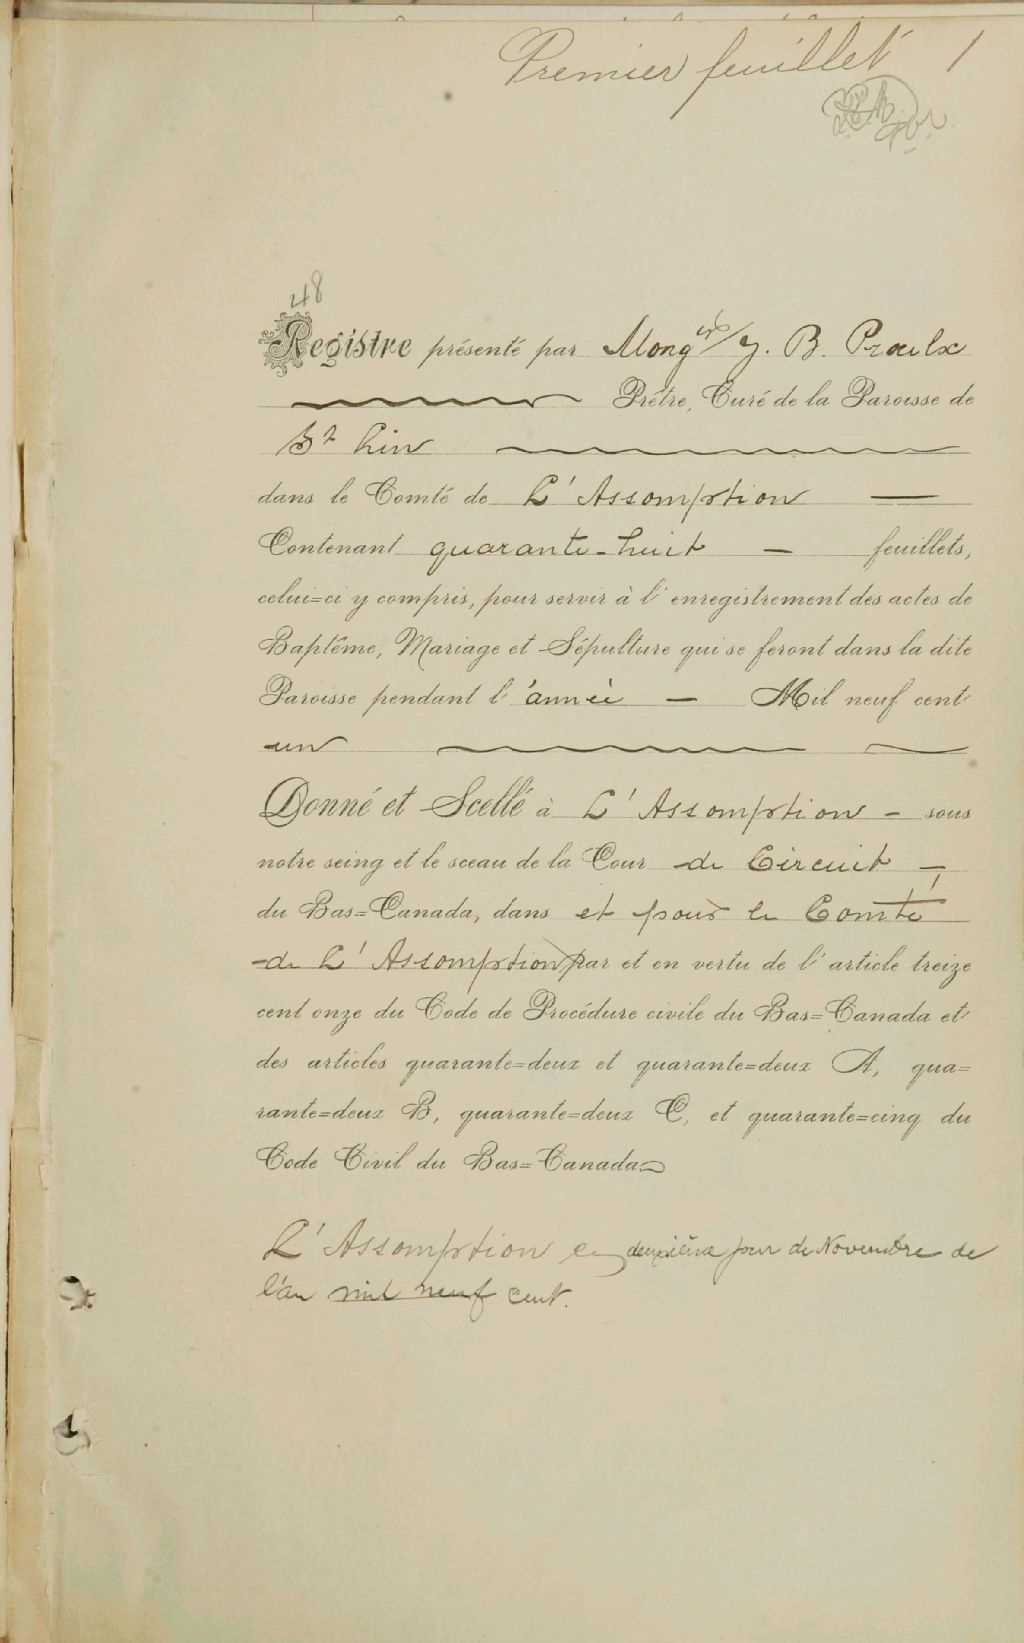 Premier feuillet 1
48
Registre présenté par Mongr J. B. Proulx
Prêtre, Curé de la Paroisse de
St Lin
dans le Comté de L'Assomption
Contenant quarante-huit feuillets,
celui=ci y compris, pour servir à l'enregistrement des actes de
Baptême, Mariage et Sépulture qui se feront dans la dite
Paroisse pendant l'année Mil neuf cent
un
Donné et Scellé à L'Assomption sous
notre seing et le sceau de la Cour de Circuit
du Bas=Canada, dans et pour le Comté
de L'Assomption par et en vertu de l'article treize
cent onze du Code de Procédure civile du Bas=Canada et
des articles quarante=deux et quarante=deux A, qua=
rante=deux B, quarante=deux C, et quarante=cinq du
Code Civil du Bas=Canada
L'Assomption ce deuxième jour de Novembre de
l'an mil neuf cent.